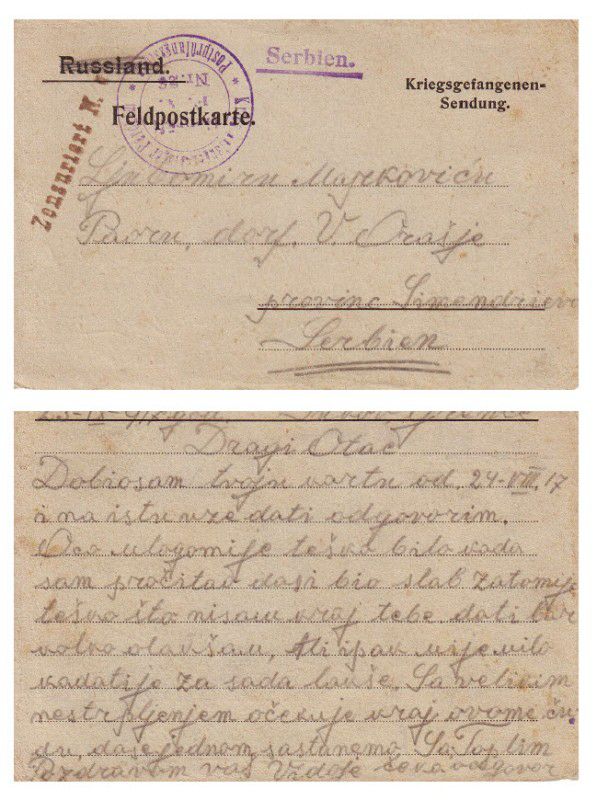 Russland.
Serbien.
Kriegsgefangenen-
Sendung.
Feldpostkarte.
Zensuriert
Nr. 25
Ljubomiru Majkoviću
Paoru, dorf. V. Orašje
provinc
Serbien
Dragi Otac
Dobiosam tvoju kartu od. 24-VIII.17
i na istu dati odgovorim.
mlogomije teško bilo kada
sam pročitao dasi bio slab zatomije
teško što nisam kraj tebe. dati bar
olakšam, Ali ipak mije milo
kadatije za sada lakše. Sa velikim
nestrpljenjem očekuje kraj ovome
du, dasejednom sastanemo. Sa Toplim
Pozdravom vaš odgovor